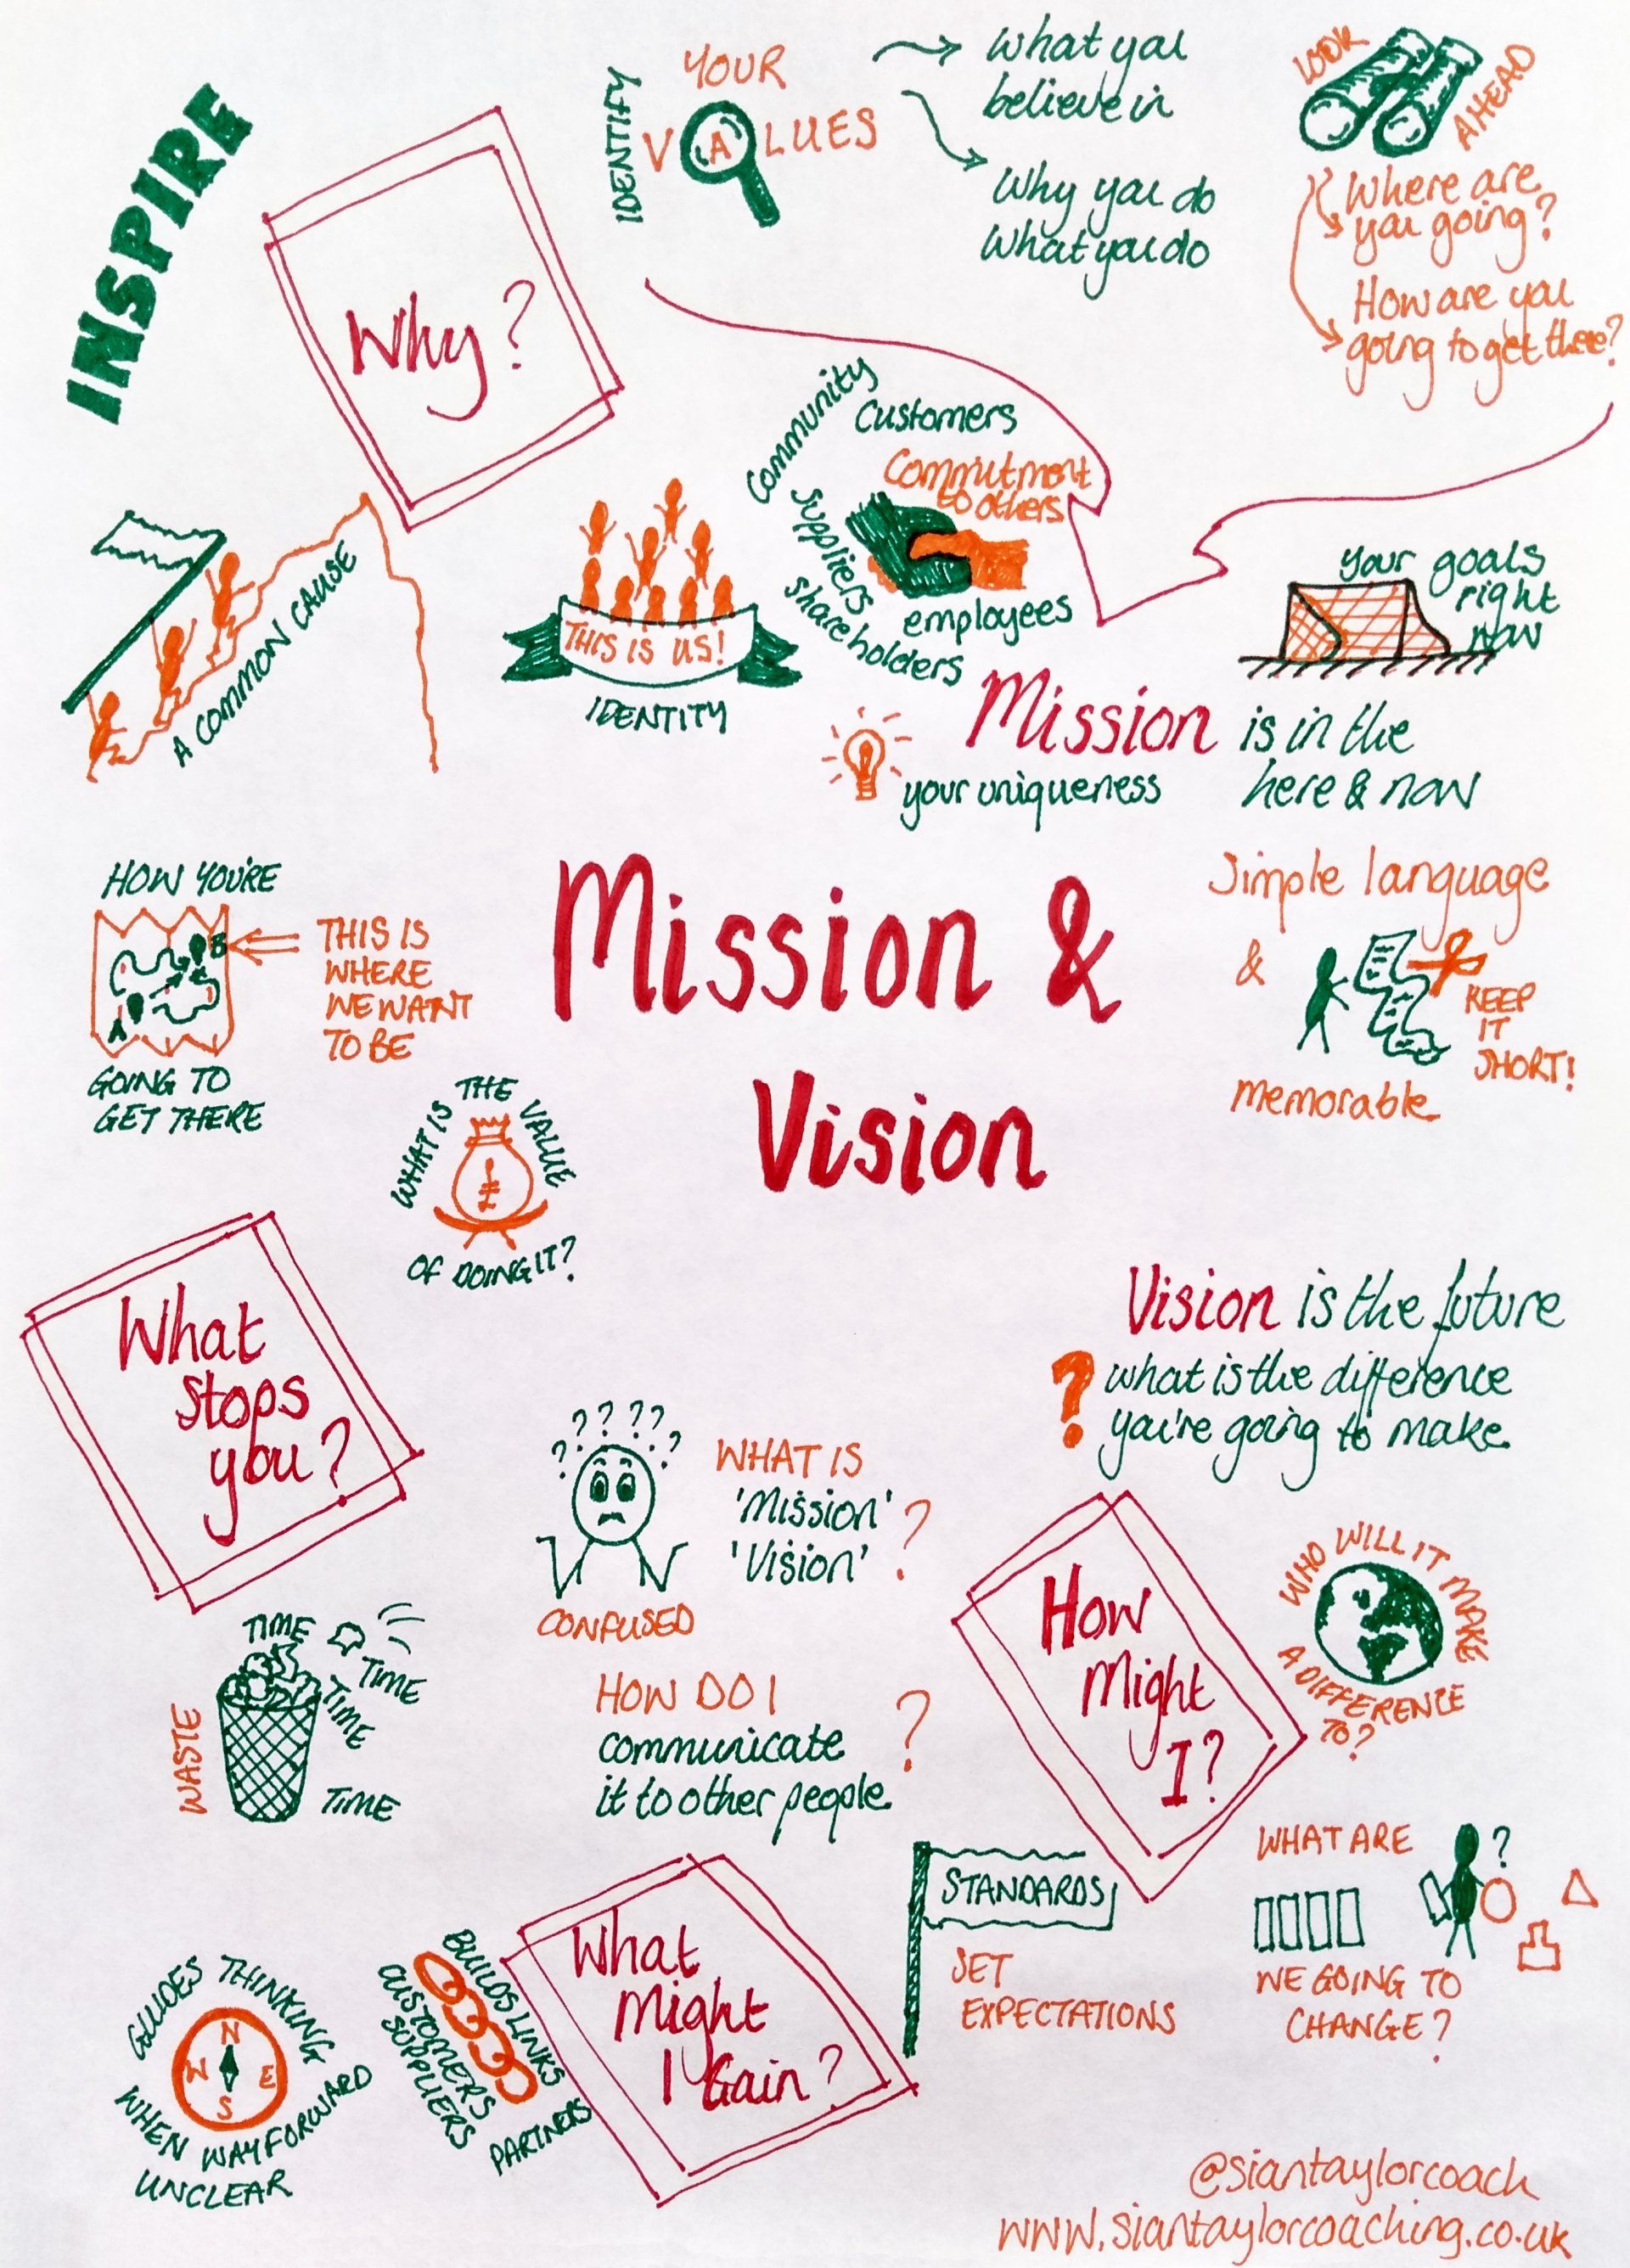 INSPIRE
Why?
IDENTIFY
YOUR
VALUES
What you
believe in
Why you do
What you do
LOOK
AHEAD
Where are
you going?
How are you
going to get there?
A COMMON CAUSE
THIS IS US!
IDENTITY
Community
Customers
Commitment
to others
Suppliers
shareholders
employees
your goals
right
now
Mission is in the
here & now
your uniqueness
HOW YOU'RE
A
B
GOING TO
GET THERE
THIS IS
WHERE
WE WANT
TO BE
Mission &
Vision
Simple language
&
memorable
KEEP
IT
SHORT!
WHAT IS THE VALUE
£
OF DOING IT?
What
stops
you?
Vision is the future
? what is the difference
you're going to make
? ? ? ? ? ? ?
CONFUSED
WHAT IS
'Mission'
'Vision' ?
HOW DO I
communicate
it to other people ?
WASTE
TIME
TIME
TIME
TIME
How
Might
I?
WHO WILL IT MAKE
A DIFFERENCE
TO?
STANDARDS
SET
EXPECTATIONS
WHAT ARE
?
WE GOING TO
CHANGE?
What
Might
I Gain?
GUIDES THINKING
N
W E
S
WHEN WAY FORWARD
UNCLEAR
BUILDS LINKS
CUSTOMERS
SUPPLIERS
PARTNERS
@siantaylorcoach
www.siantaylorcoaching.co.uk